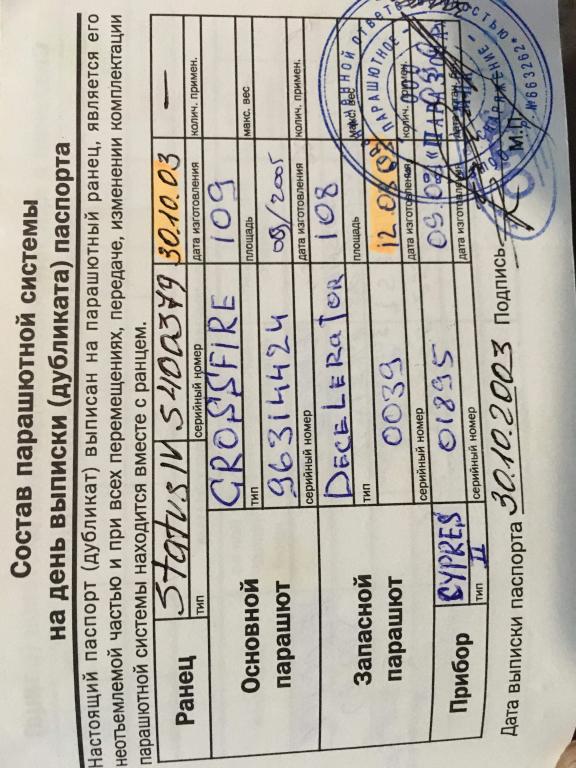 Состав парашютной системы
на день выписки (дубликата) паспорта
Настоящий паспорт (дубликат) выписан на парашютный ранец, является его
неотъемлемой частью и при всех перемещениях, передаче, изменении комплектации
парашютной системы находится вместе с ранцем.
Ранец Status IV S400379 30.10.03 —
тип серийный номер дата изготовления колич. примен.
Основной парашют
CROSSFIRE 109
тип площадь макс. вес
96314424 09/2005
серийный номер дата изготовления колич. примен.
Запасной парашют
DECELERATOR 108
тип площадь макс. вес
0039 12.03.03
серийный номер дата изготовления колич. примен.
Прибор CYPRES II 01895 09.03
тип серийный номер дата изготовления
Дата выписки паспорта 30.10.2003 Подпись
М.П.
ПАРАШЮТНОЕ
№663262*